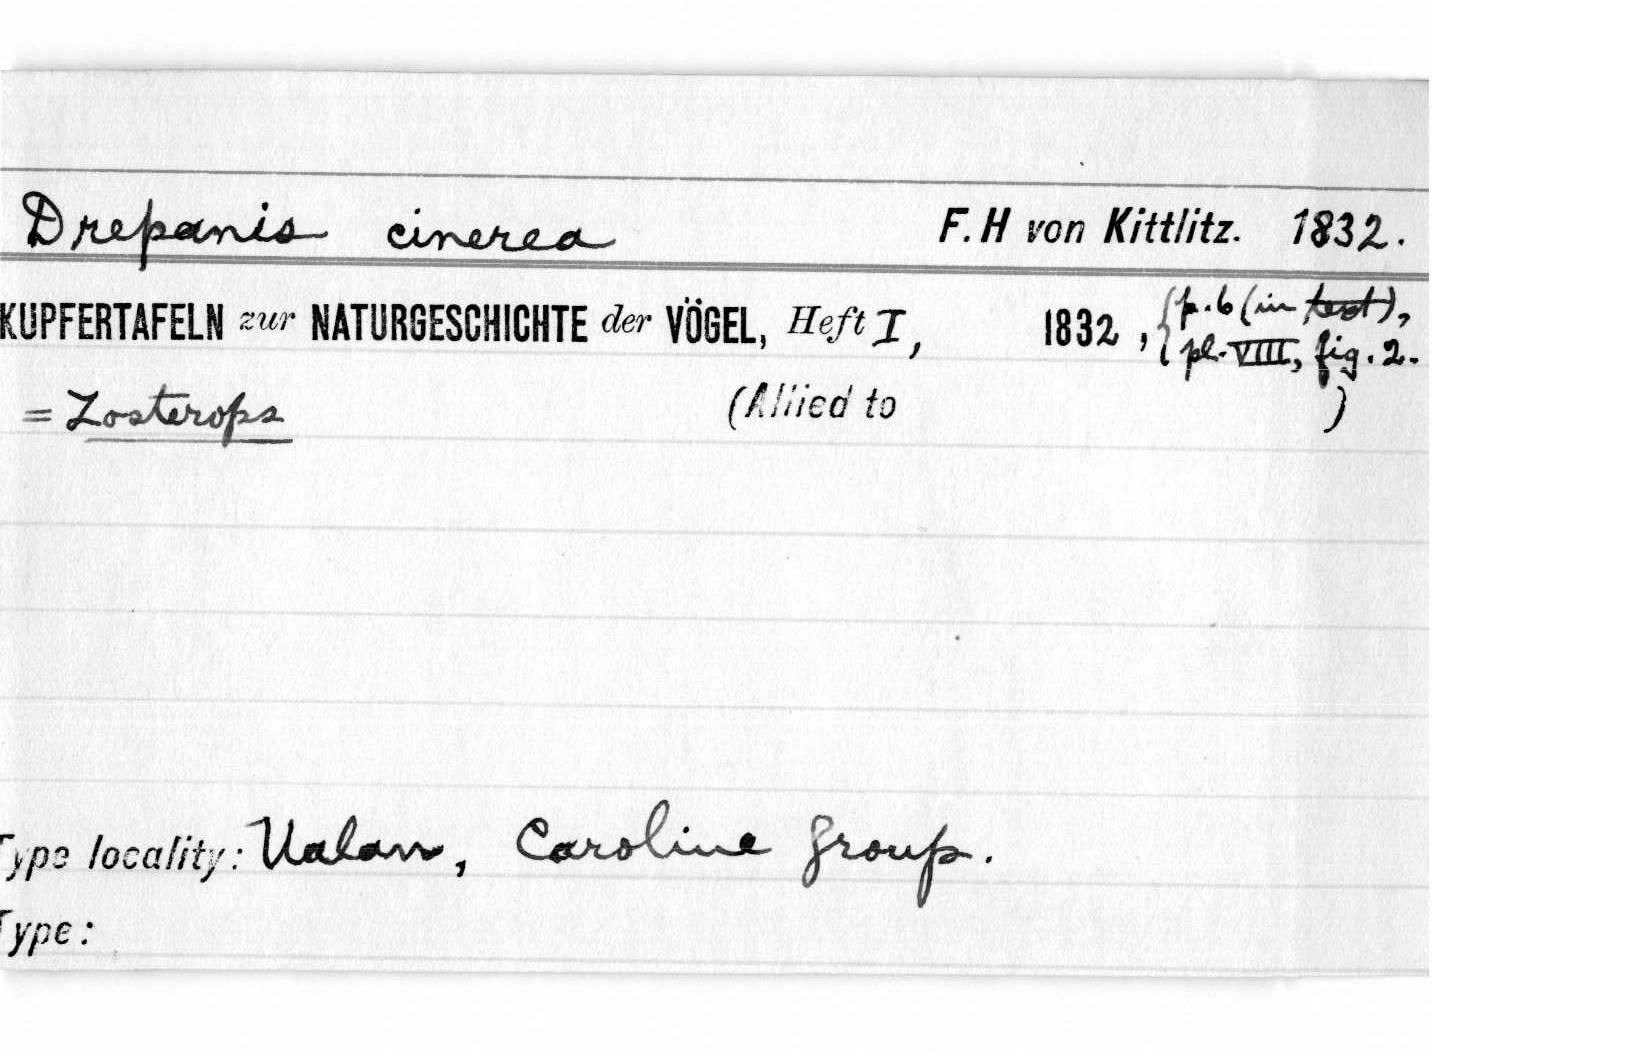 Drepanis cinerea F. H von Kittlitz. 1832.
KUPFERTAFELN zur NATURGESCHICHTE der VÖGEL, Heft I, 1832, { p. 6 (in text),
pl. VIII, fig. 2.
= Zosterops (Allied to )
Type locality: Ualan, Caroline group.
Type: